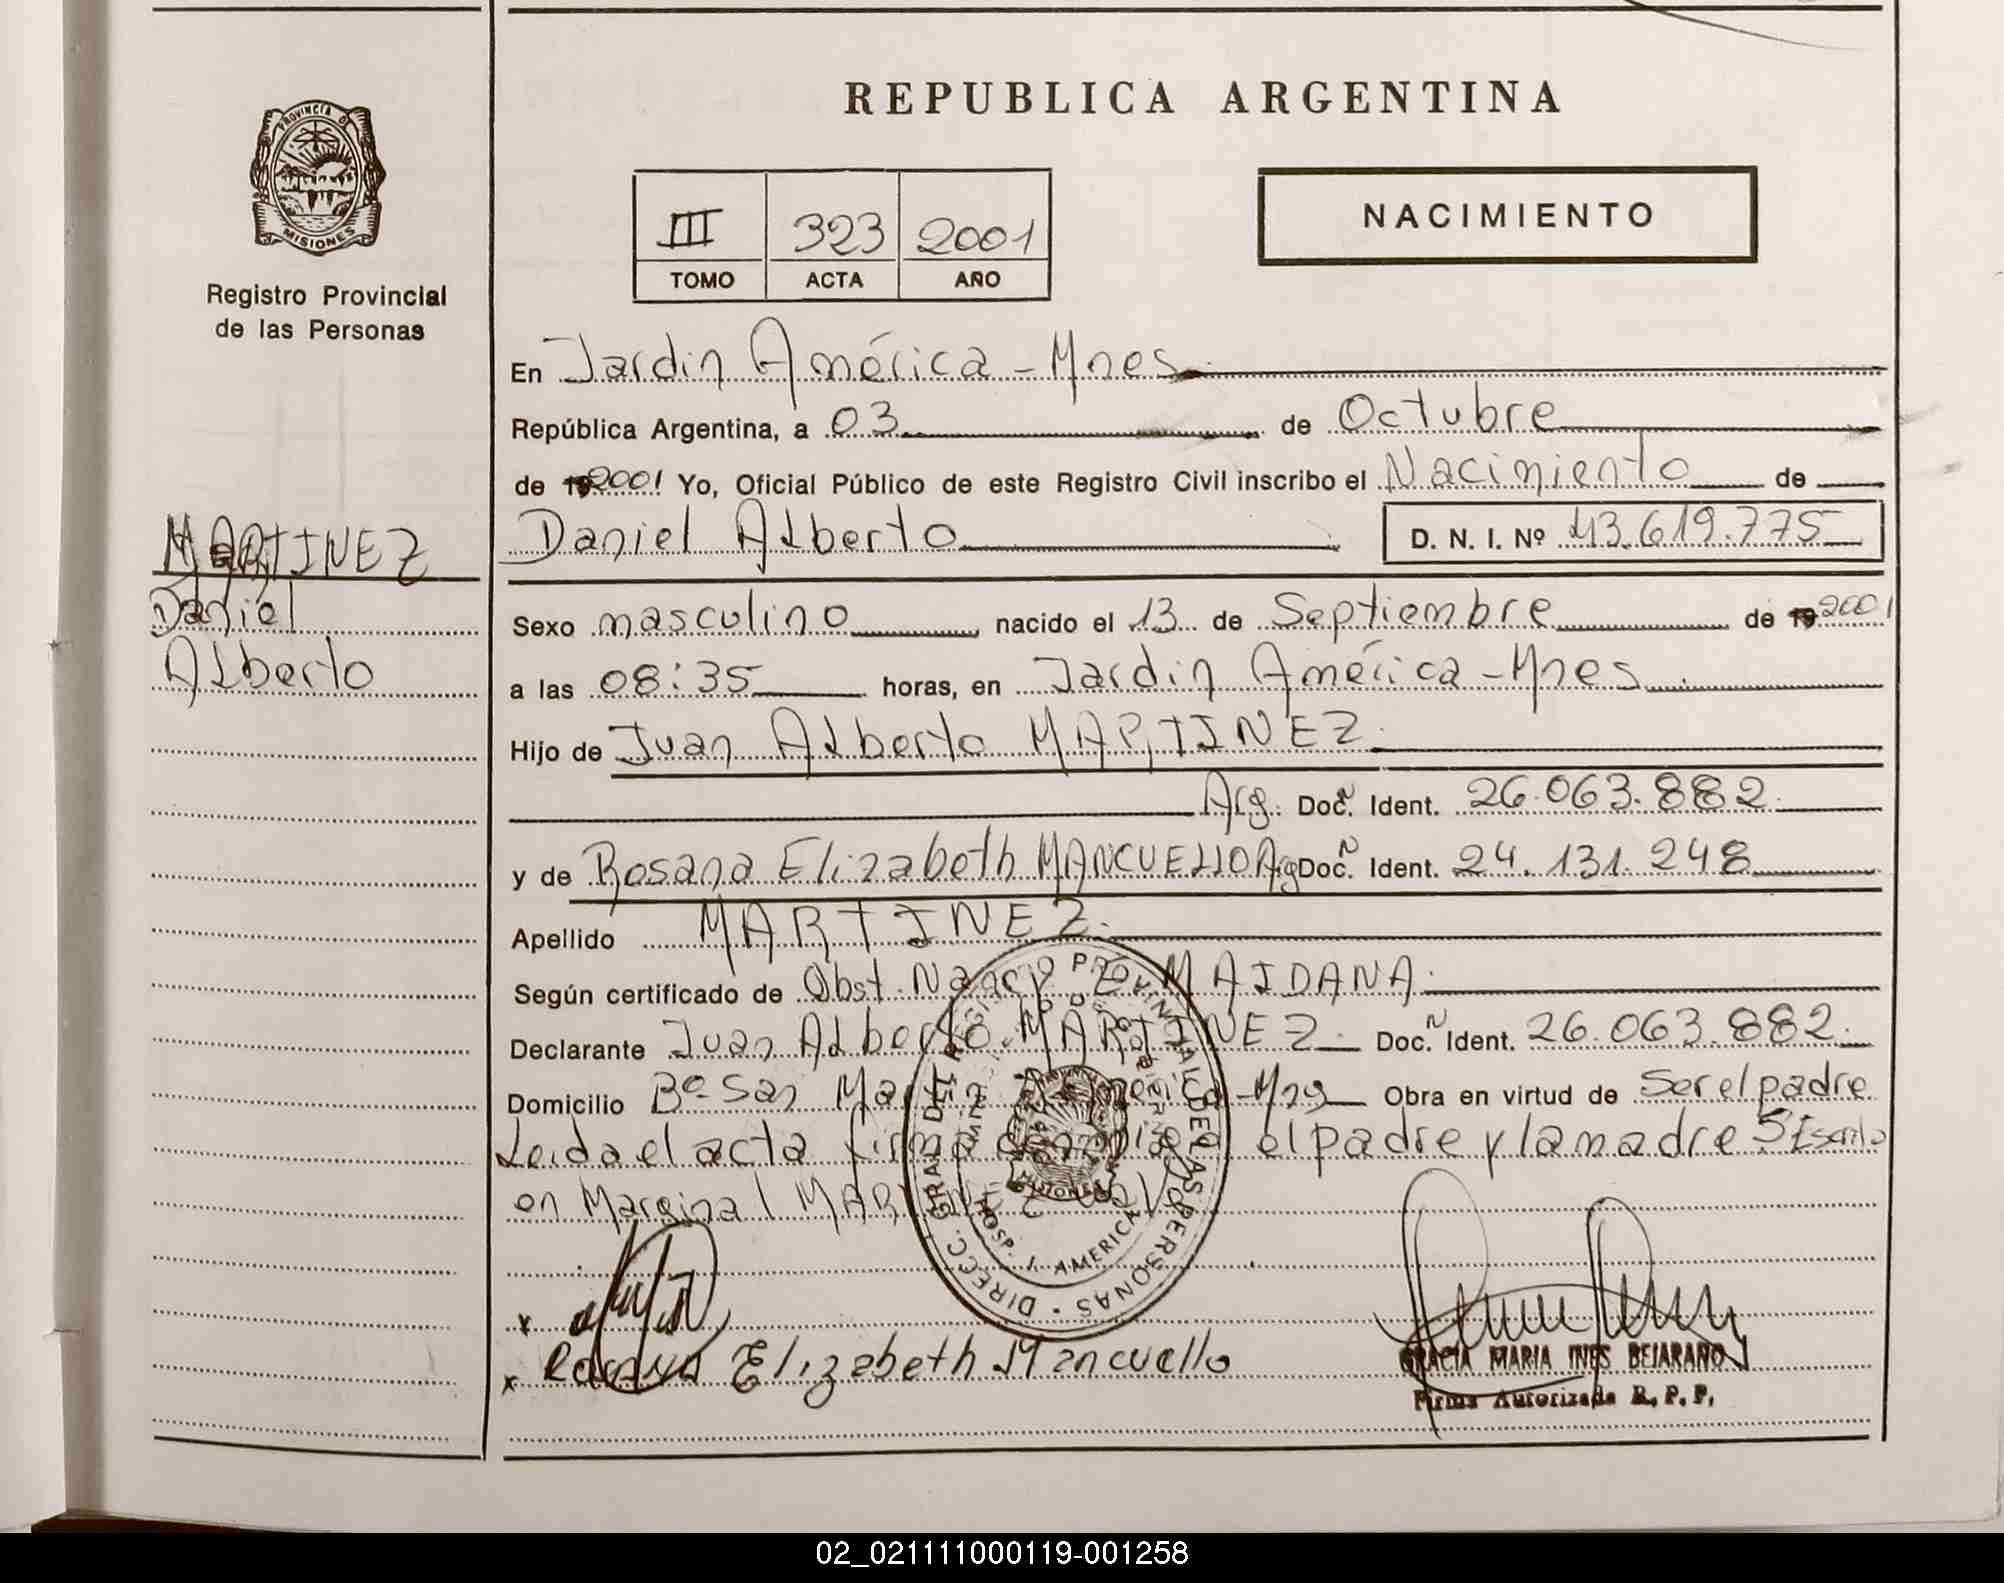 REPUBLICA ARGENTINA
PROVINCIA DE
MISIONES
Registro Provincial
de las Personas
III 323 2001
TOMO ACTA AÑO
NACIMIENTO
En Jardin América - Mnes
República Argentina, a 03 de Octubre
de 2001 Yo, Oficial Público de este Registro Civil inscribo el Nacimiento de
MARTINEZ
Daniel
Alberto
Daniel Alberto D. N. I. Nº 43.619.775
Sexo masculino nacido el 13 de Septiembre de 2001
a las 08:35 horas, en Jardin América - Mnes
Hijo de Juan Alberto MARTINEZ
Arg. Doc. Ident. 26.063.882
y de Rosana Elizabeth MANCUELLO Arg Doc. Ident. 24.131.248
Apellido MARTINEZ
Según certificado de Obst. Nancy E. MAIDANA
Declarante Juan Alberto MARTINEZ Doc. Ident. 26.063.882
Domicilio Bº San Martin América - Mns Obra en virtud de ser el padre
Leida el acta firma conmigo el padre y la madre S/Escrito
en Marginal MARTINEZ
DIRECC. GRAL. DEL REGISTRO PROVINCIAL DE LAS PERSONAS
HOSP. J. AMERICA
x
x Rosana Elizabeth Mancuello
GRACIA MARIA INES BEJARANO
Firma Autorizada R. P. P.
02_021111000119-001258